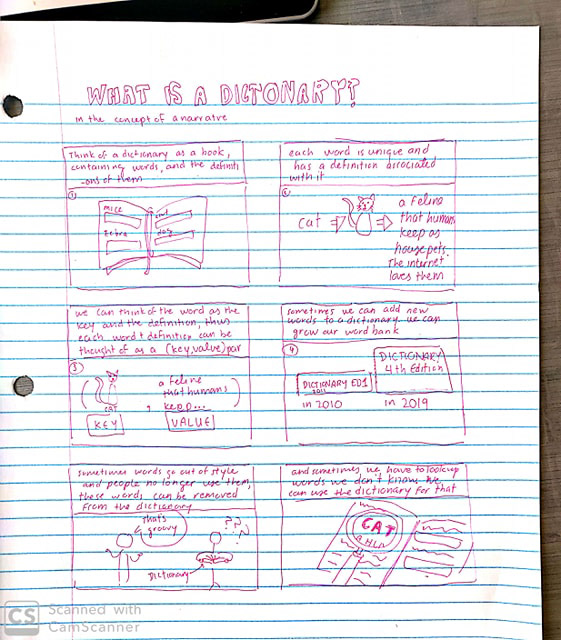 WHAT IS A DICTONARY?
in the concept of a narratve
Think of a dictionary as a book,
containing words, and the definiti
-ons of them
1
mice
zebra
dog
each word is unique and
has a definition associated
with it
2
cat
a feline
that humans
keep as
house pets.
The internet
loves them
we can think of the word as the
key and the definition, thus
each word + definition can be
thought of as a (key, value) pair
3
CAT
a feline
that humans
, keep...
KEY
VALUE
sometimes we can add new
words to a dictionary we can
grow our word bank
4
DICTIONARY ED1
in 2010
DICTIONARY
4th Edition
in 2019
sometimes words go out of style
and people no longer use them,
these words can be removed
from the dictionary
that's
groovy
???
Dictionary
and sometimes we have to look up
words we don't know. We
can use the dictionary for that
CAT
CS Scanned with
CamScanner